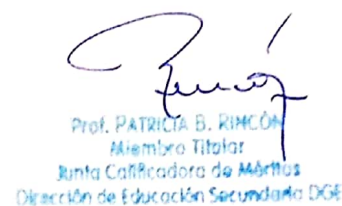 Rincón
Prof. PATRICIA B. RINCÓN
Miembro Titular
Junta Calificadora de Méritos
Dirección de Educación Secundaria DGE